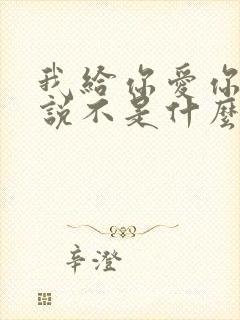 我給你愛你
說不是什麼
辛澄